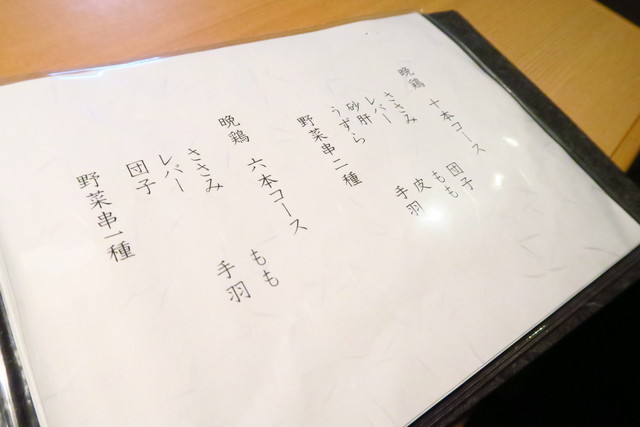 晩鶏　十本コース
ささみ　団子
レバー　もも
砂肝　皮
うずら　手羽
野菜串二種
晩鶏　六本コース
ささみ　もも
レバー　手羽
団子
野菜串一種